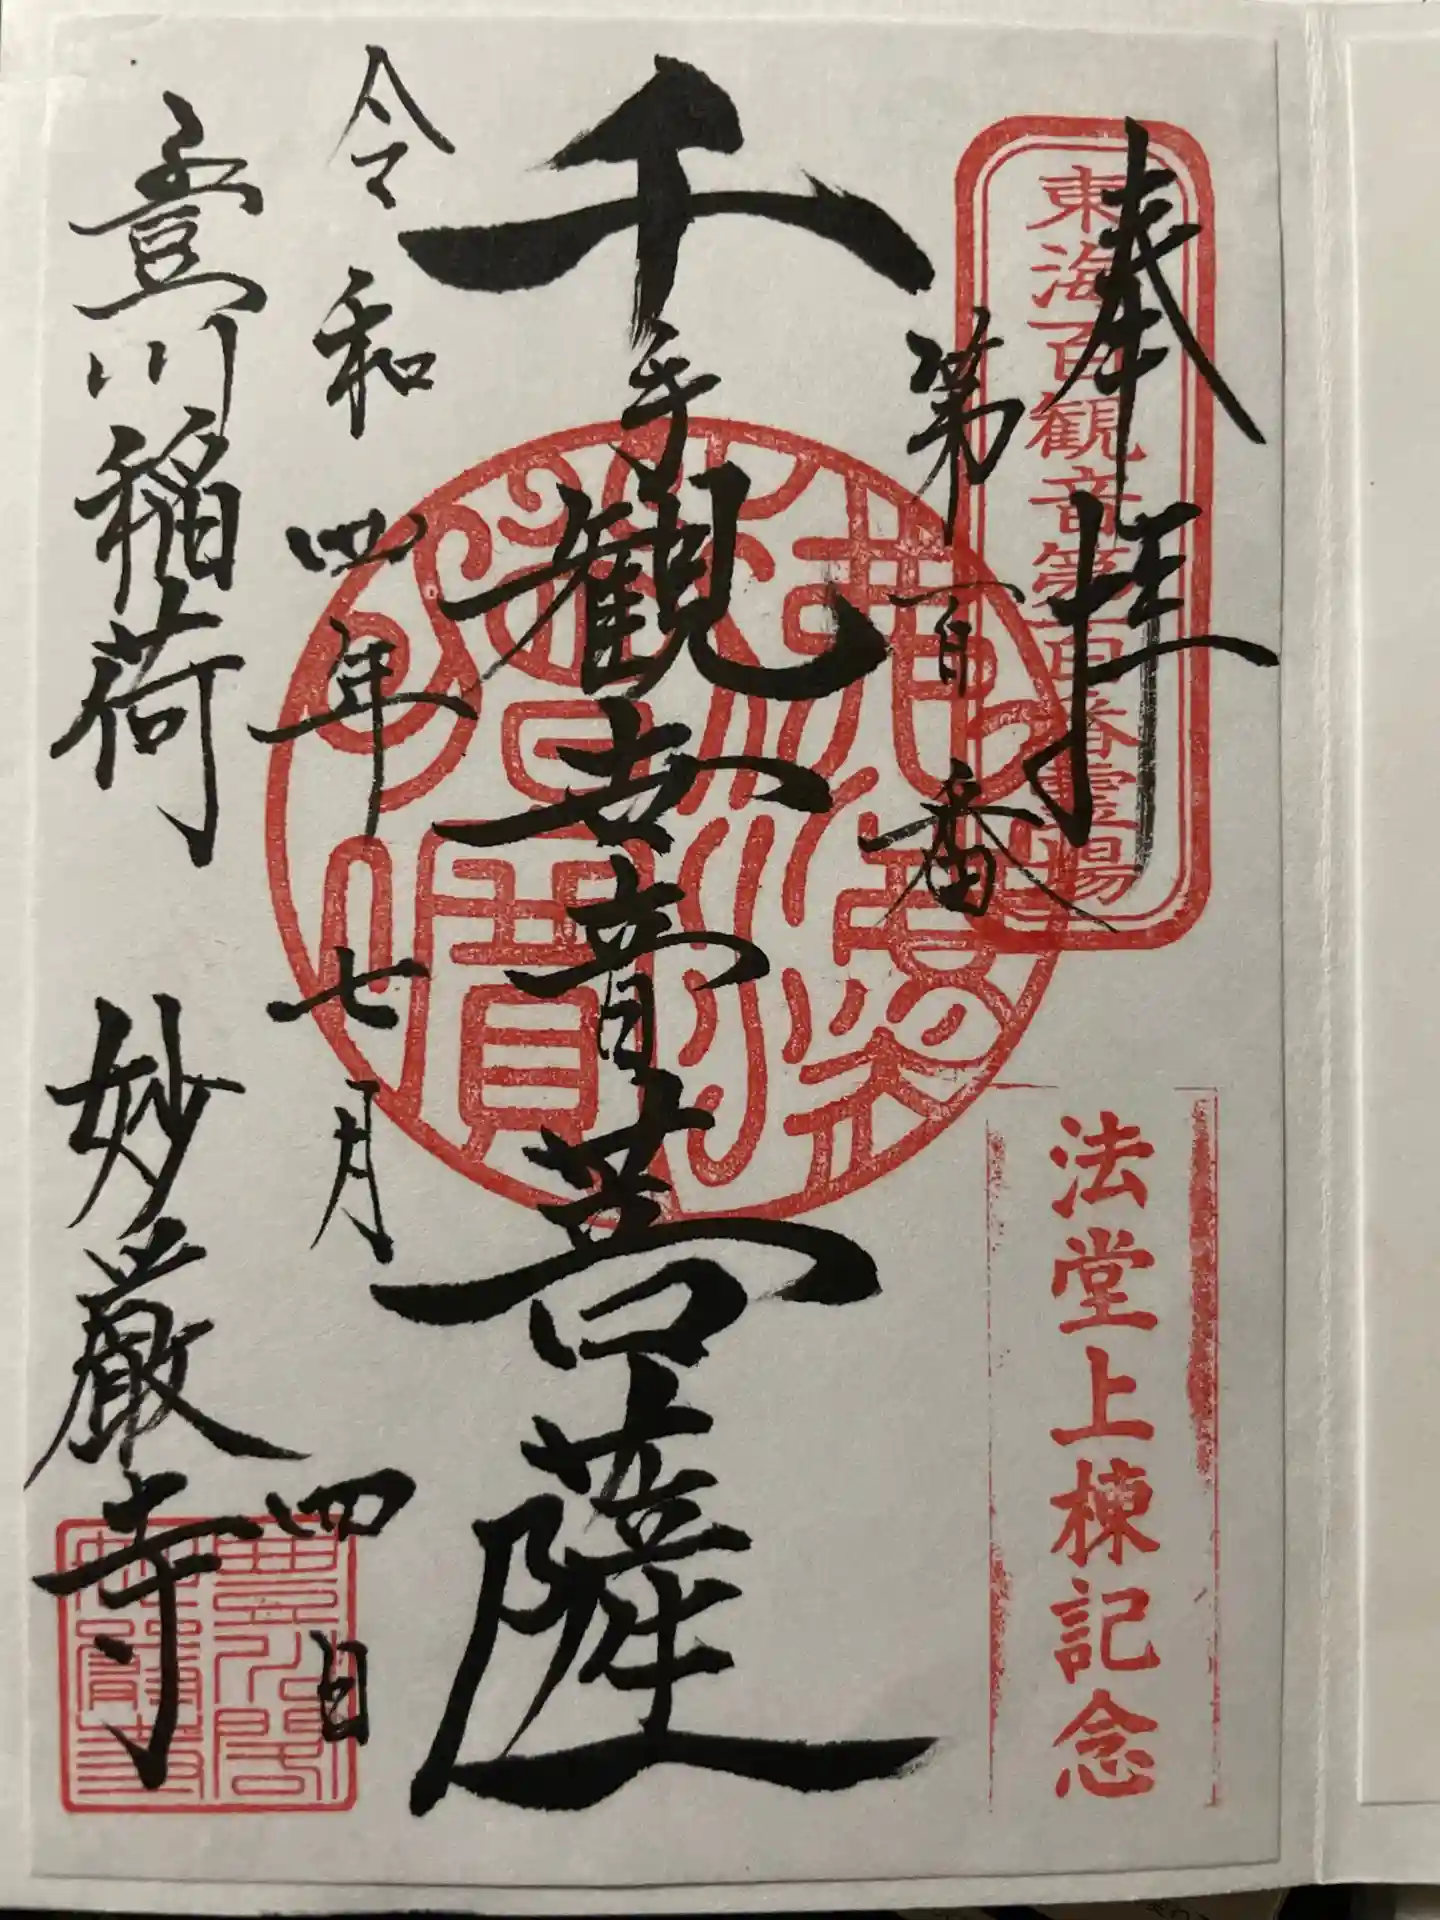 奉拝
東海百観音第百番靈場
法堂上棟記念
第百番
千手観世音菩薩
令和四年七月四日
豊川稲荷 妙厳寺